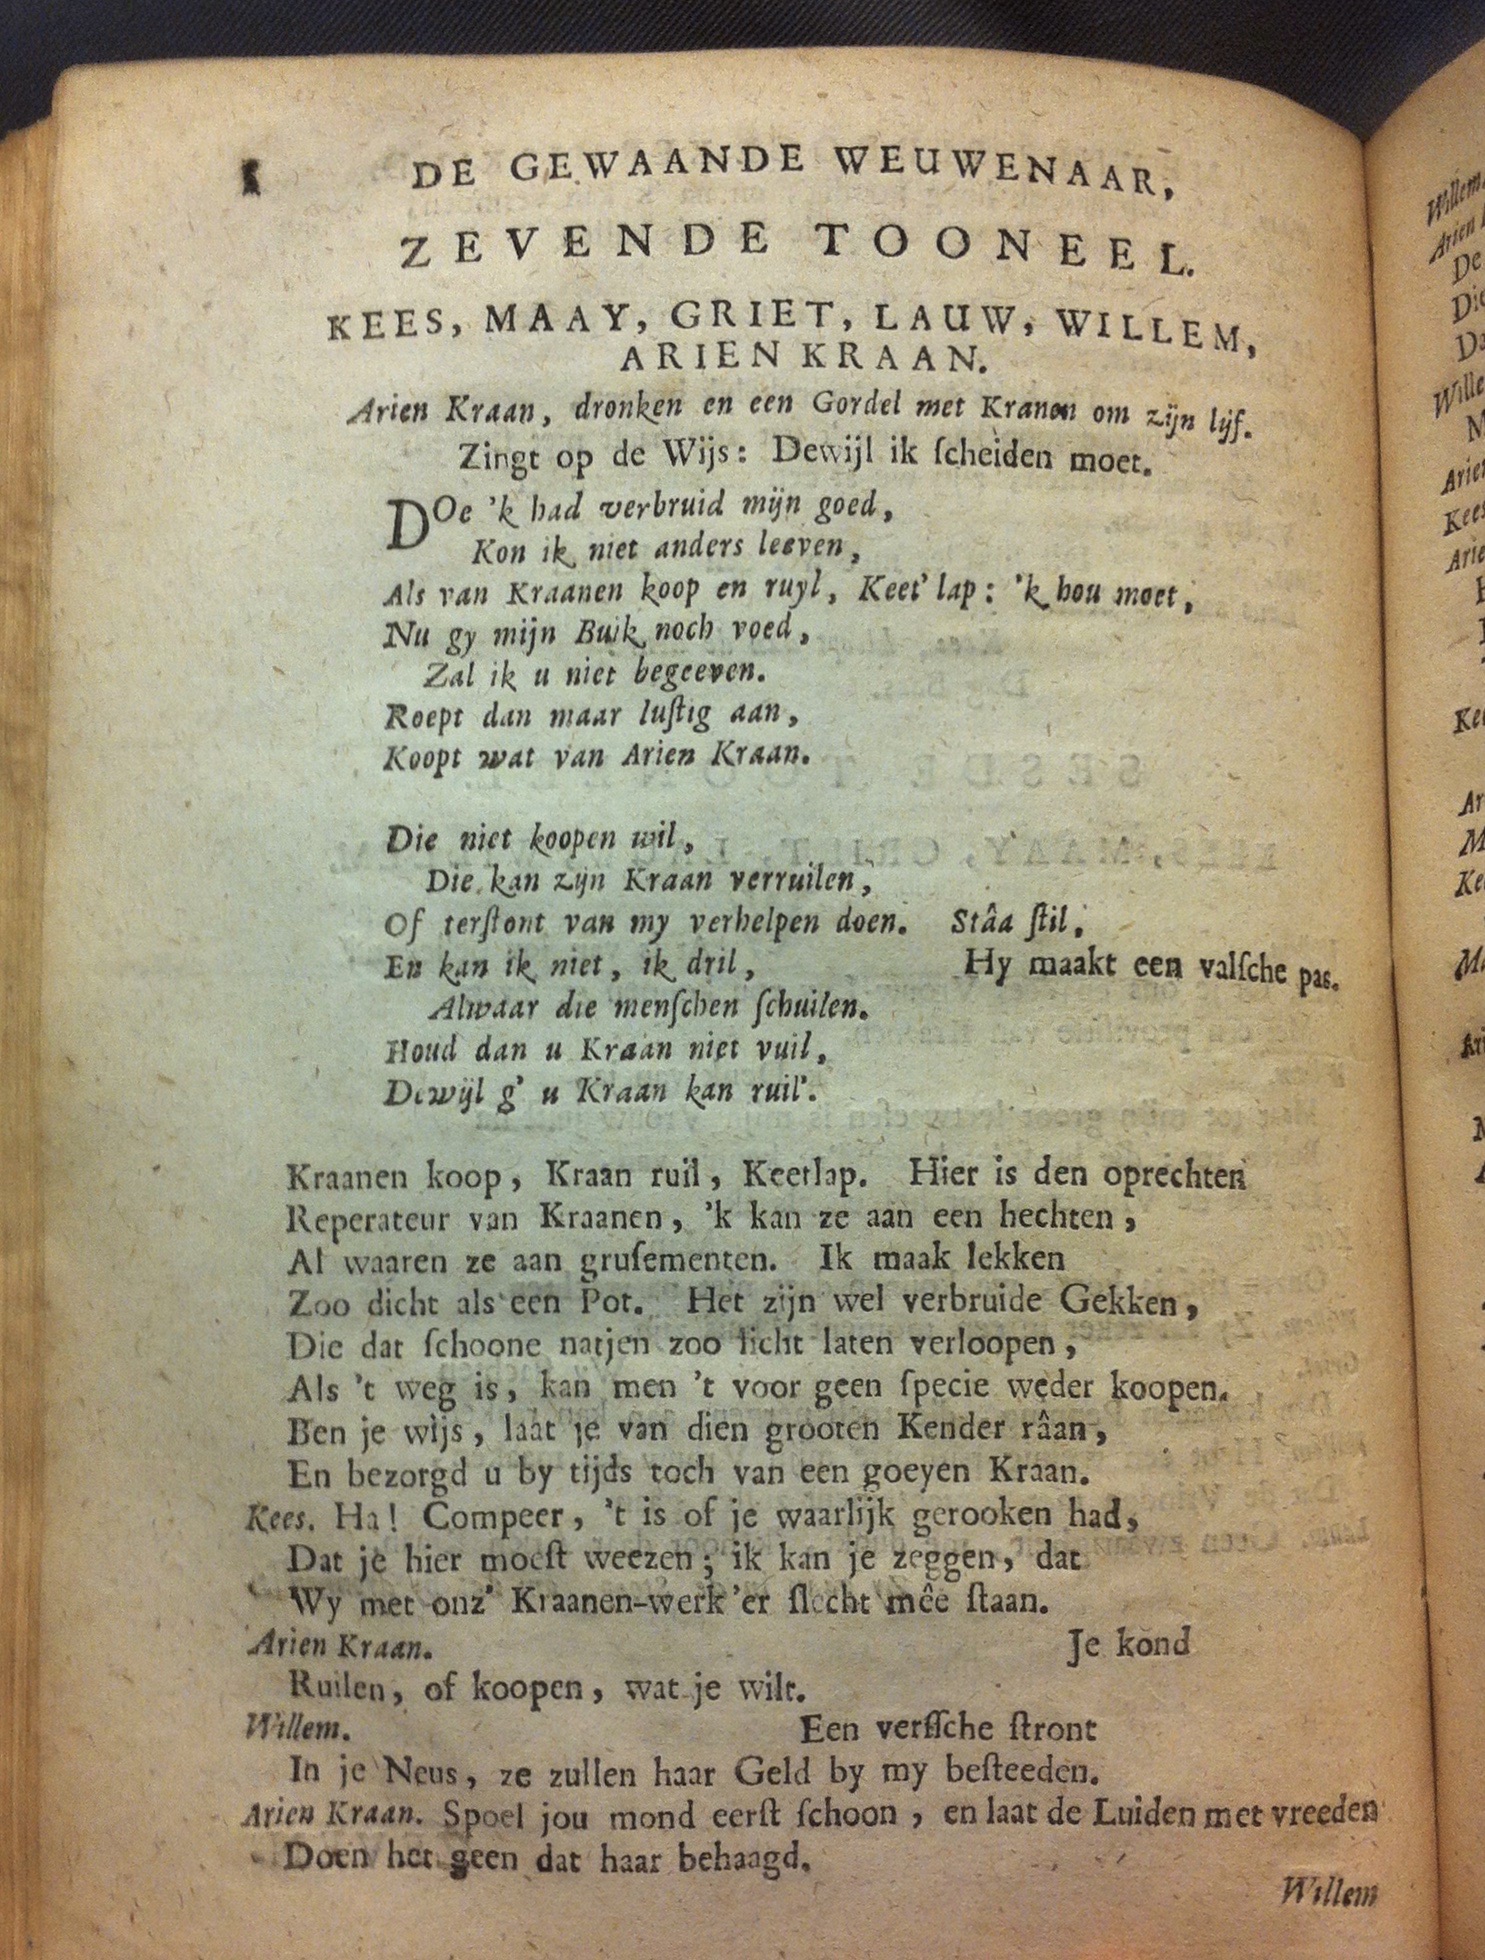 8 DE GEWAANDE WEUWENAAR,
ZEVENDE TOONEEL.
KEES, MAAY, GRIET, LAUW, WILLEM,
ARIEN KRAAN.
Arien Kraan, dronken en een Gordel met Kranen om zijn lijf.
Zingt op de Wijs: Dewijl ik ſcheiden moet.
DOe 'k had verbruid mijn goed,
Kon ik niet anders leeven,
Als van Kraanen koop en ruyl, Keet' lap: 'k hou moet,
Nu gy mijn Buik noch voed,
Zal ik u niet begeeven.
Roept dan maar luſtig aan,
Koopt wat van Arien Kraan.
Die niet koopen wil,
Die kan zijn Kraan verruilen,
Of terſtont van my verhelpen doen. Stâa ſtil.
En kan ik niet, ik dril, Hy maakt een valſche pas.
Alwaar die menſchen ſchuilen.
Houd dan u Kraan niet vuil,
Dewijl g' u Kraan kan ruil'.
Kraanen koop, Kraan ruil, Keetlap. Hier is den oprechten
Reperateur van Kraanen, 'k kan ze aan een hechten,
Al waaren ze aan gruſementen. Ik maak lekken
Zoo dicht als een Pot. Het zijn wel verbruide Gekken,
Die dat ſchoone natjen zoo licht laten verloopen,
Als 't weg is, kan men 't voor geen ſpecie weder koopen.
Ben je wijs, laat je van dien grooten Kender râan,
En bezorgd u by tijds toch van een goeyen Kraan.
Kees. Ha! Compeer, 't is of je waarlijk gerooken had,
Dat je hier moeſt weezen; ik kan je zeggen, dat
Wy met onz' Kraanen-werk 'er ſlecht mêe ſtaan.
Arien Kraan. Je kond
Ruilen, of koopen, wat je wilt.
Willem. Een verſſche ſtront
In je Neus, ze zullen haar Geld by my beſteeden.
Arien Kraan. Spoel jou mond eerſt ſchoon, en laat de Luiden met vreeden
Doen het geen dat haar behaagd.
Willem